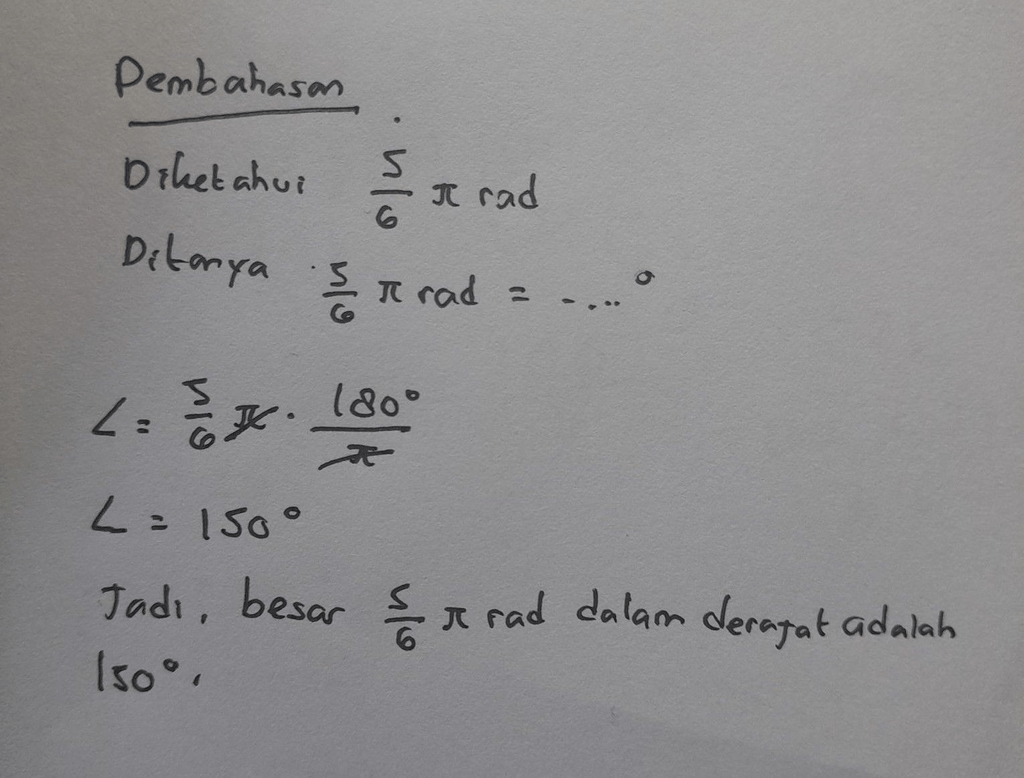 Pembahasan
Diketahui 5/6 π rad
Ditanya 5/6 π rad = ....°
∠ = 5/6 π . 180°/π
∠ = 150°
Jadi, besar 5/6 π rad dalam derajat adalah
150°.